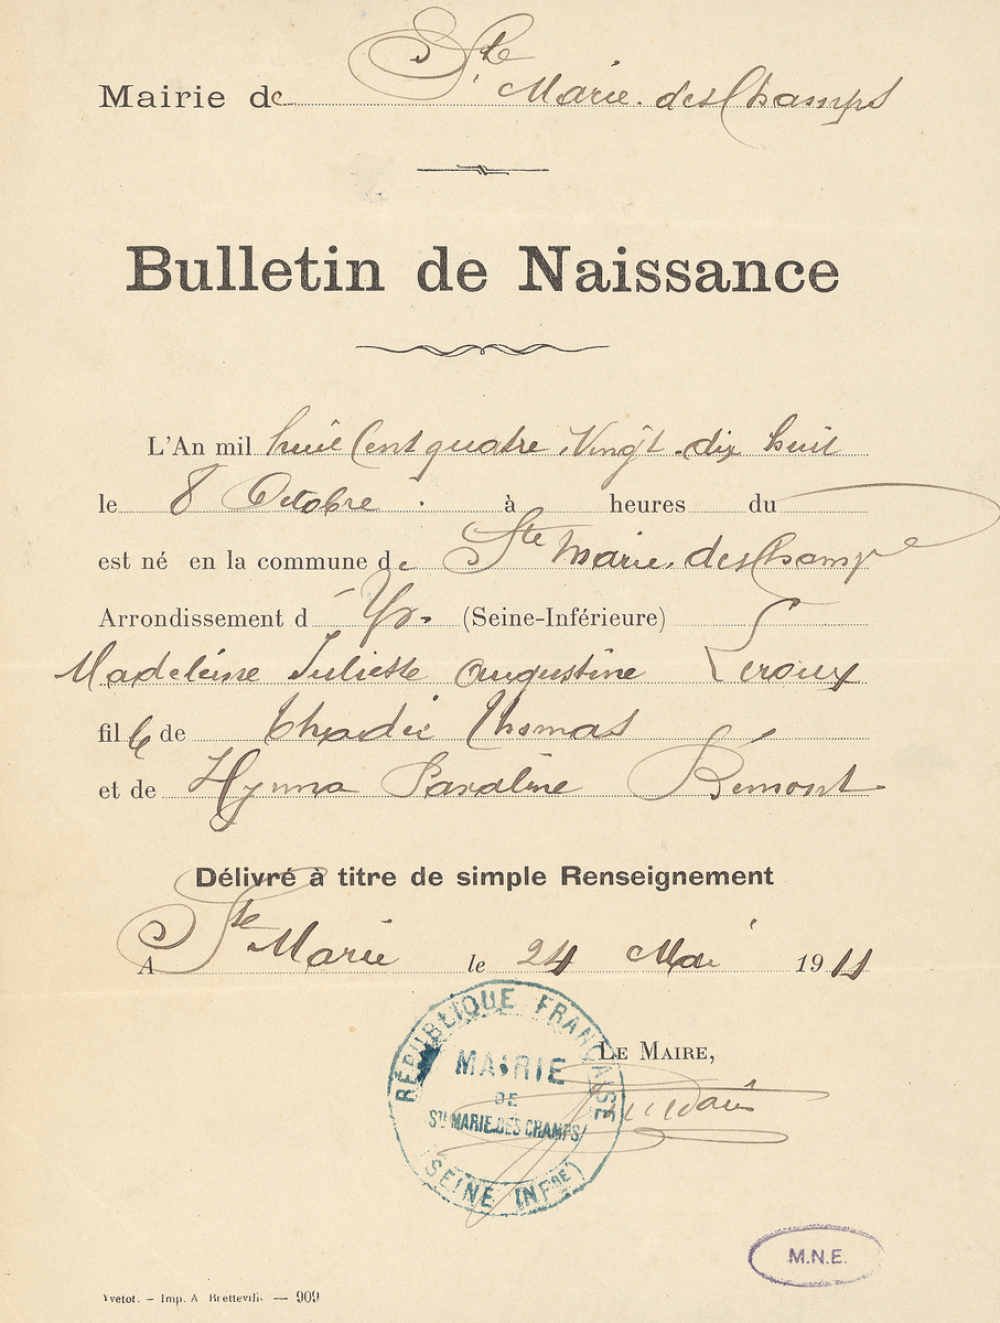 Mairie de Ste Marie-des Champs
Bulletin de Naissance
L'An mil huit Cent quatre Vingt-dix huit
le 8 Octobre à heures du
est né en la commune de Ste Marie-des Champs
Arrondissement d (Seine-Inférieure)
Madeleine Juliette Augustine Leroux
fille de Thomas
et de Pauline Bémont
Délivré à titre de simple Renseignement
A Ste Marie le 24 Mai 1911
RÉPUBLIQUE FRANÇAISE
MAIRIE
DE
STE MARIE DES CHAMPS
SEINE INFRE
LE MAIRE,
M.N.E.
Yvetot. — Imp. A Bretteville — 909